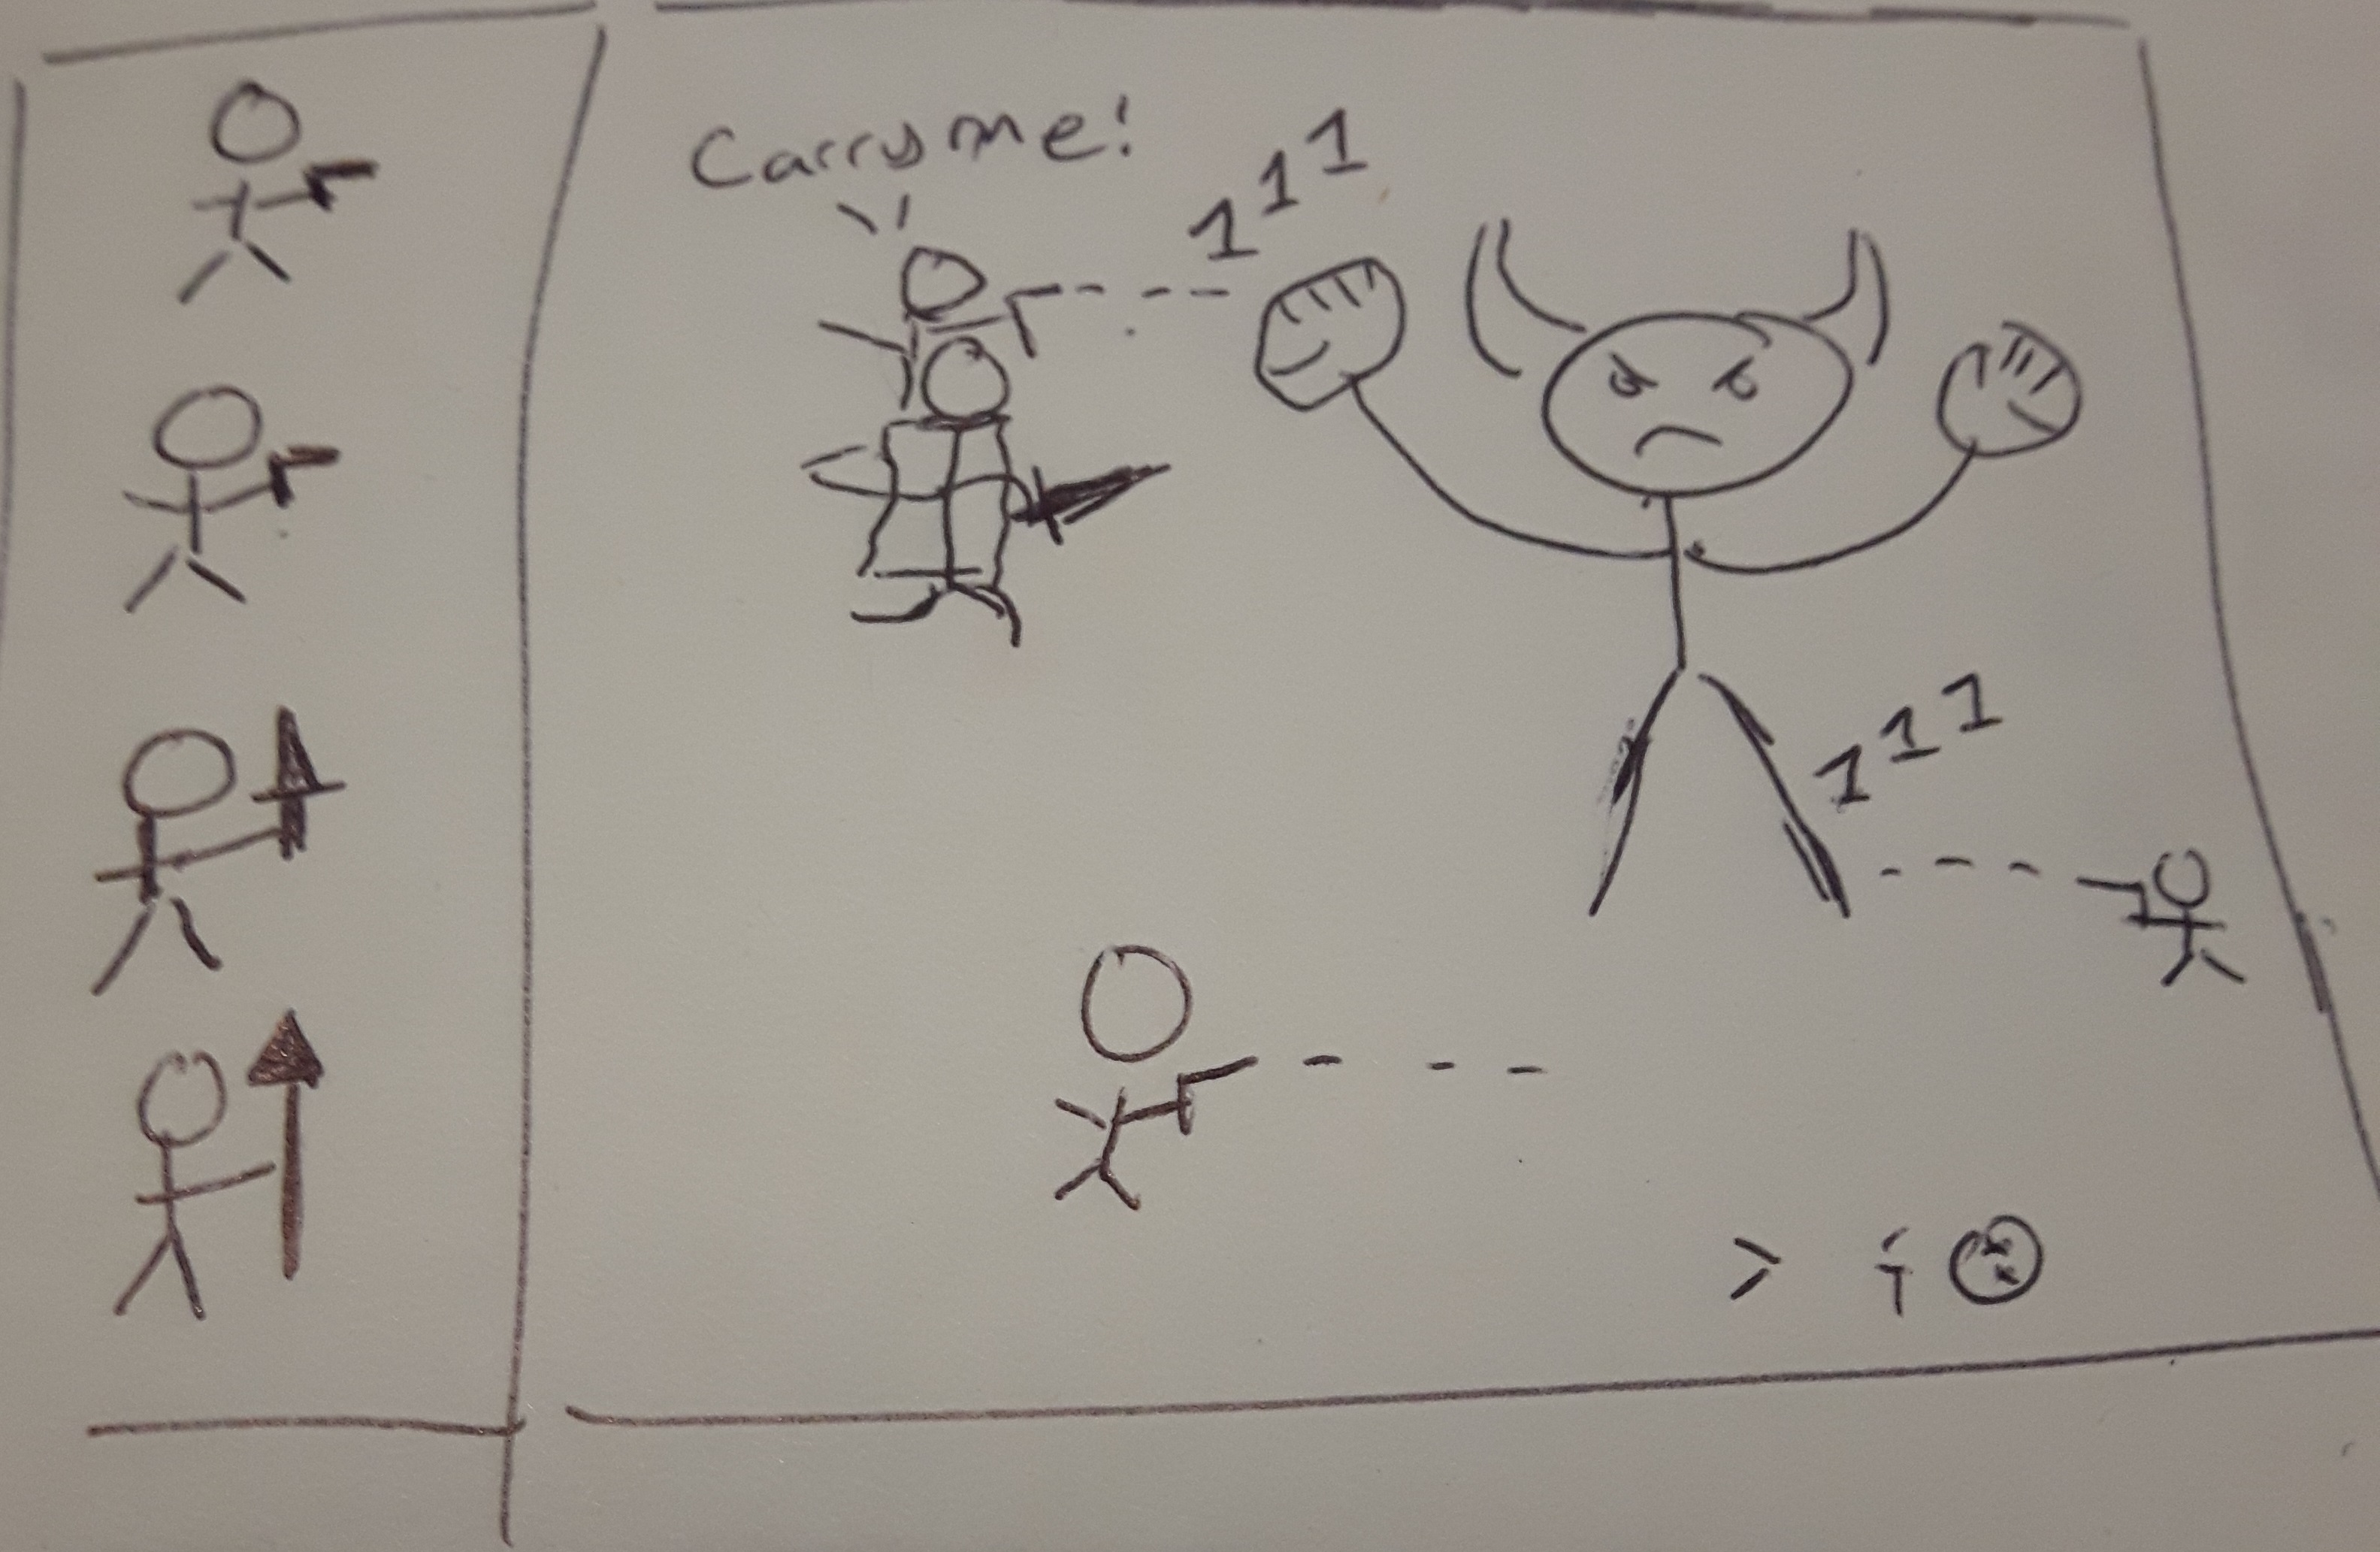 Carry me!
1 1 1
1 1 1